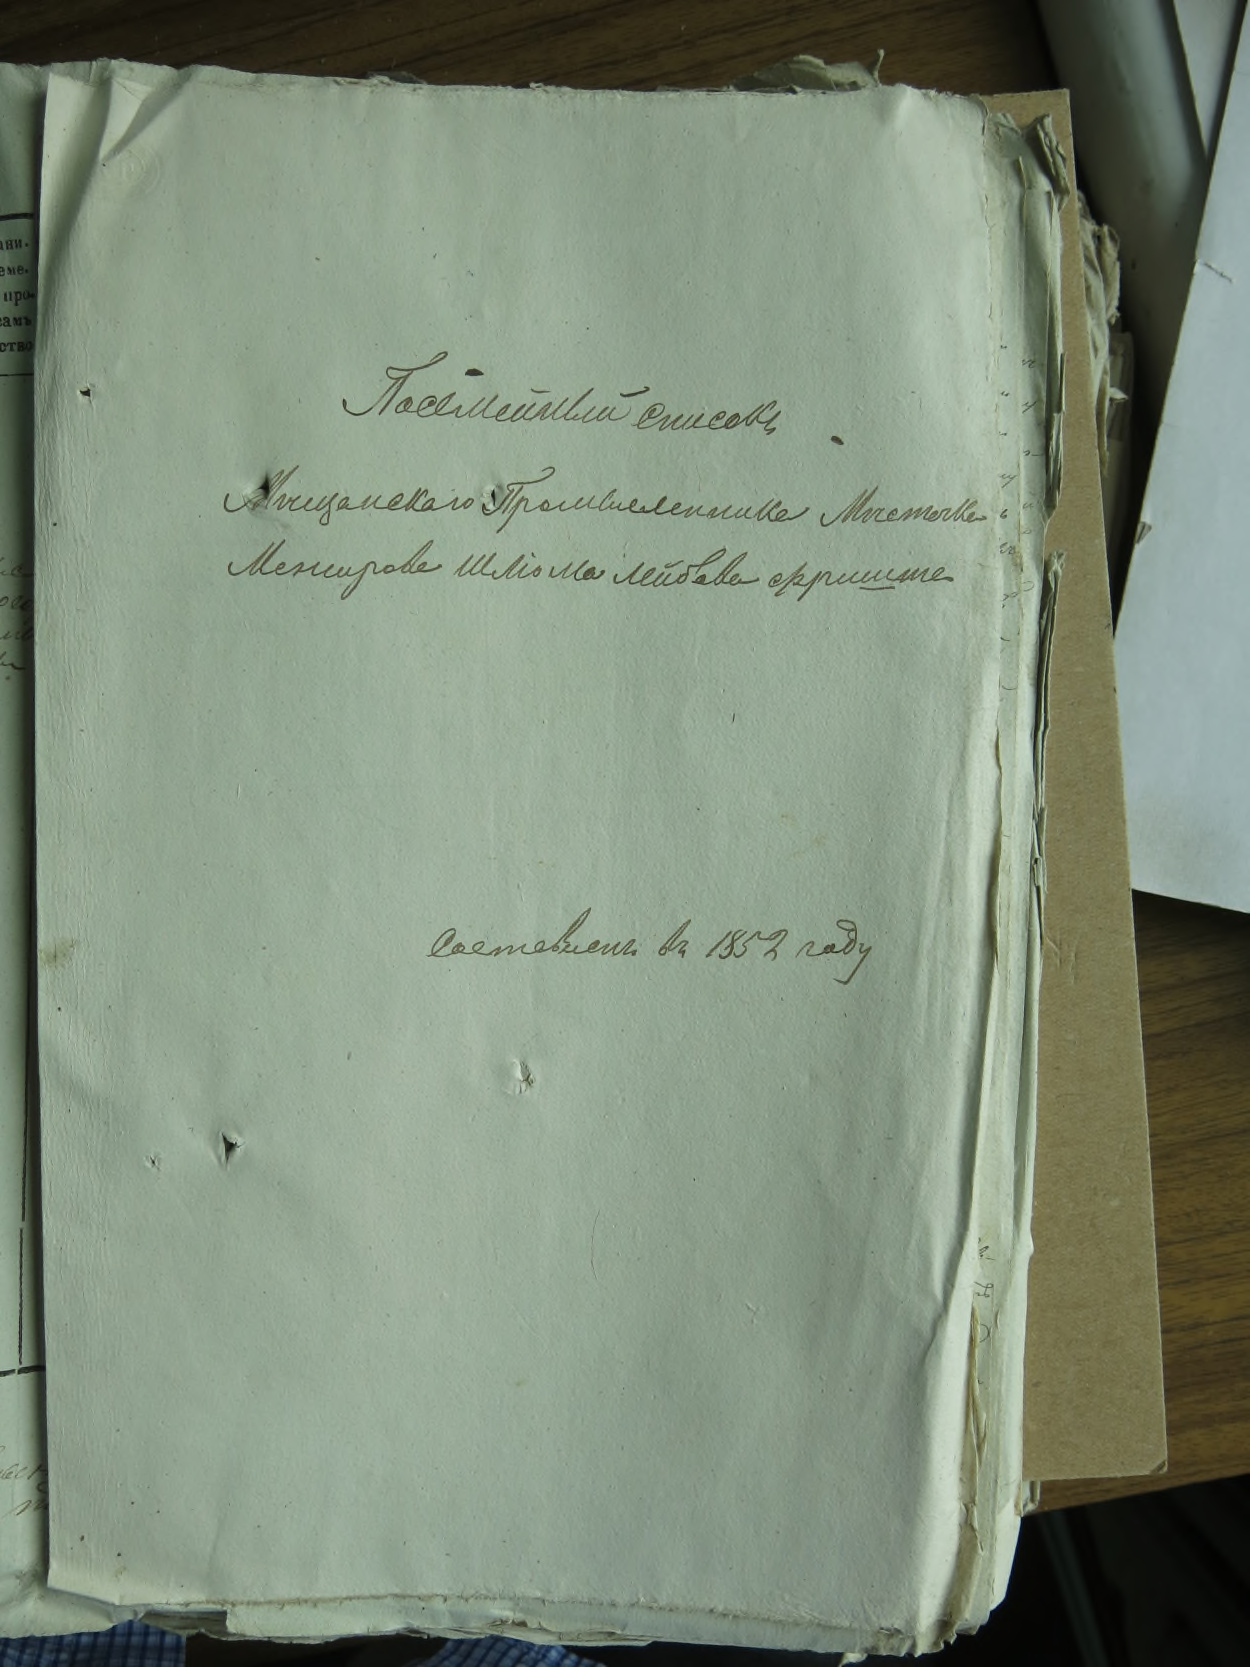 ани.
еме.
про-
самъ
ство
Посемейный списокъ
Мѣщанскаго Промышленника Мѣстечка
Межирова Шлiома Лейбова
Составленъ въ 1852 году